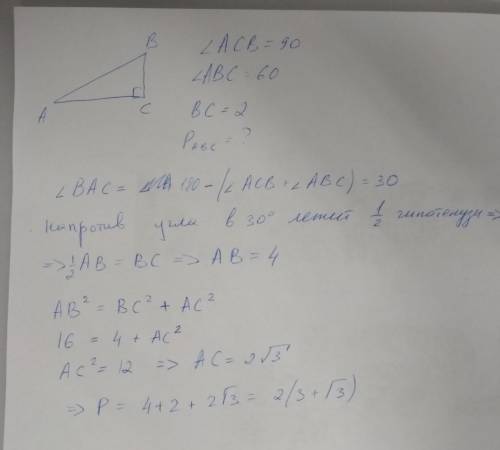 B
A
C
∠ACB = 90
∠ABC = 60
BC = 2
P_ABC = ?
∠BAC = 180 - (∠ACB + ∠ABC) = 30
Напротив угла в 30° лежит 1/2 гипотенузы =>
=> 1/2 AB = BC => AB = 4
AB² = BC² + AC²
16 = 4 + AC²
AC² = 12 => AC = 2√3
=> P = 4+2+2√3 = 2(3+√3)